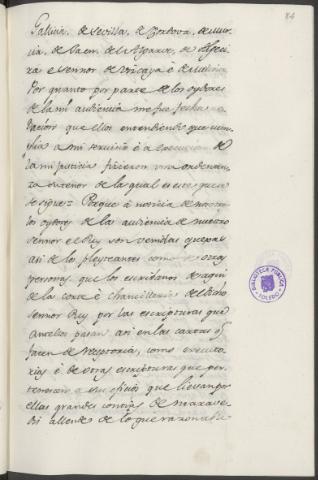 84
Galicia, de Sevilla, de Cordova, de Mur-
cia, de Jaen, de el Algarve, de Algeci-
ra e Sennor de Vizcaya è de Molina
Por quanto por parte de los oydores
de la mi audiencia me fue fecha re-
lacion que ellos entendiendo que cum-
plia a mi servicio è a execucion de
la mi justicia ficieron una ordenan-
za su tenor de la qual es este que
se sigue: Porque à noticia de nos
los oydores de la audiencia de nuestro
sennor el Rey son venidas quexas
asi de los pleyteantes como de otras
personas que los escribanos de aqui
de la corte è chancilleria de dicho
sennor Rey por las escripturas que
ante ellos pasan asi en las cartas q
facen de receptoria, como executo-
rias è de otras escripturas que per-
tenescen a sus oficios que llevan por
ellas grandes contias de marave-
dis allende de lo que razonable
BIBLIOTECA PUBLICA
TOLEDO